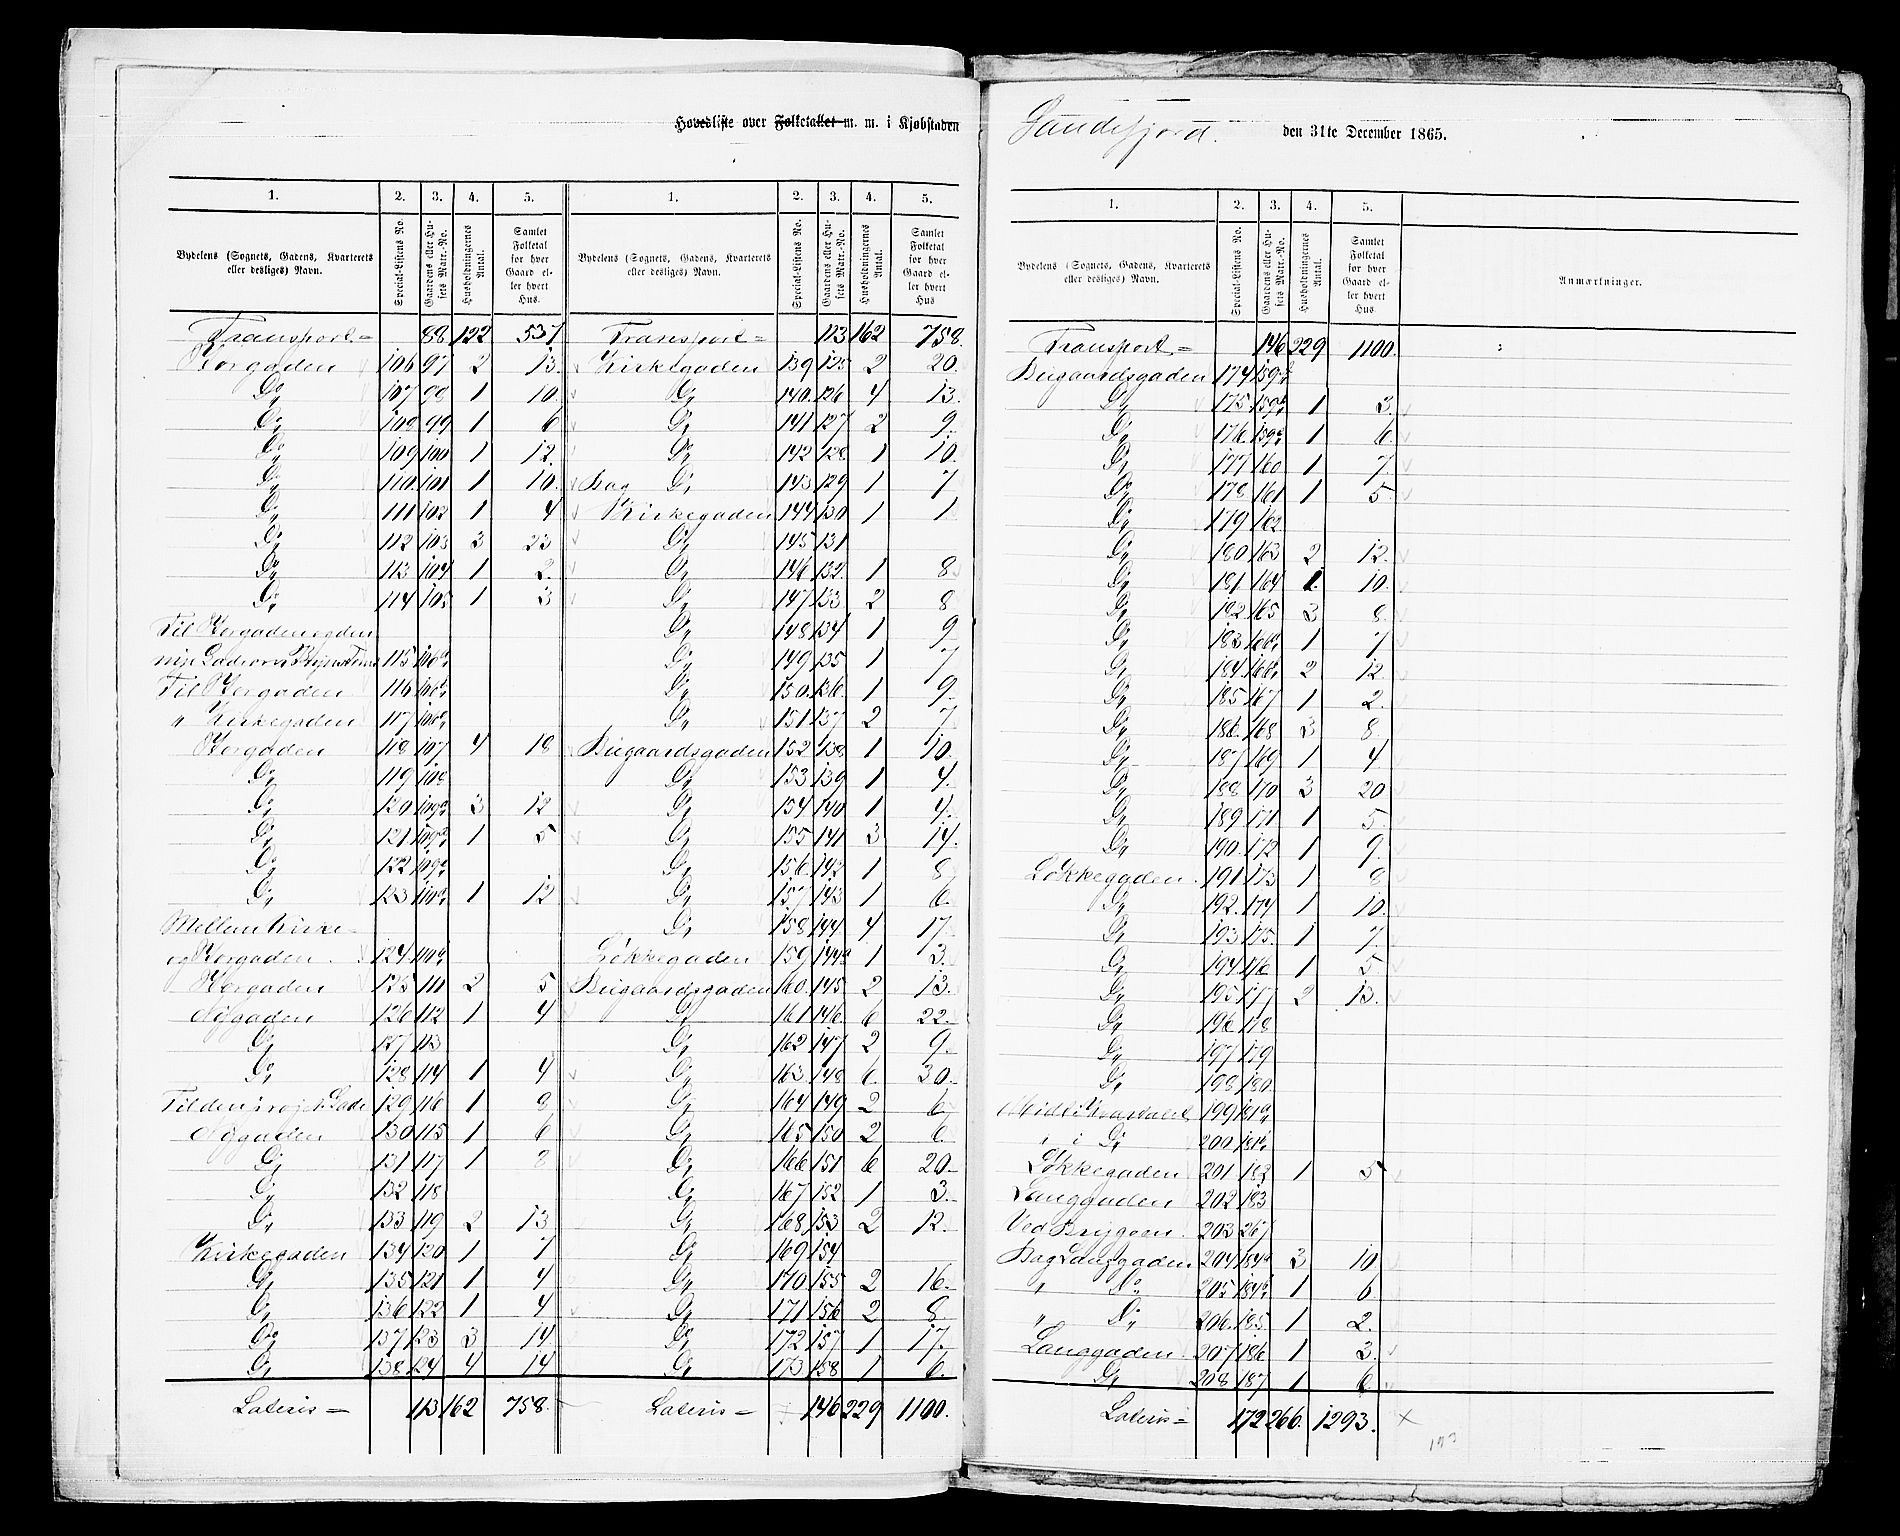 Hovedliste over Folketallet m. m. i Kjøbstaden Sandefjord. den 31te December 1865.
1. 2. 3. 4. 5.
Bydelens (Sognets, Gadens, Kvarterets eller desliges) Navn. Special-Listens No. Gaardens eller Husets Matr.-No. Husholdningernes Antal. Samlet Folketal for hver Gaard eller hvert Hus.
Transport = 88 122 537
Torgaden 106 97 2 13.
Do 107 98 1 10
Do 108 99 1 6
Do 109 100 1 12.
Do 110 101 1 10.
Do 111 102 1 4
Do 112 103 3 23
Do 113 104 1 2.
Do 114 105 1 3
Til Torgaden og den
115 106a
Til Torgaden 116 106b
" Kirkegaden 117 106c
Torgaden 118 107 4 18
Do 119 108
Do 120 109a 3 12
Do 121 109b 1 5
Do 122 109c
Do 123 110a 1 12
Mellem Kirke-
og Torgaden. 124 110b
Torgaden 125 111 2 5
Nygaden 126 112 1 4
Do 127 113
Do 128 114 1 4
Til den proj. Gade 129 116 1 8
Nygaden 130 115 1 6
Do 131 117 1 8
Do 132 118
Do 133 119 2 13
Kirkegaden 134 120 1 7
Do 135 121 1 4
Do 136 122 1 4
Do 137 123 3 14
Do 138 124 4 14
Lateris = 113 162 758.
1. 2. 3. 4. 5.
Bydelens (Sognets, Gadens, Kvarterets eller desliges) Navn. Special-Listens No. Gaardens eller Husets Matr.-No. Husholdningernes Antal. Samlet Folketal for hver Gaard eller hvert Hus
Transport = 113 162 758.
Kirkegaden 139 125 2 20.
Do 140. 126 4 13.
Do 141 127 2 9.
Do 142 128 1 10.
Bag Do 143 129 1 7
Kirkegaden 144 130 1 1
Do 145 131
Do 146 132 1 8
Do 147 133 2 8
Do 148 134 1 9
Do 149 135 1 7
Do 150. 136. 1 9.
Do 151 137 2 7
Bugaardsgaden 152 138 1 10.
Do 153 139 1 4.
Do 154 140 1 4.
Do 155 141 3 14.
Do 156. 142 1 8
Do 157 143 1 6.
Do 158 144 4 17.
Løkkegaden 159 144b 1 3.
Bugaardsgaden 160. 145 2 13.
Do 161 146. 6 22.
Do 162 147 2 9.
Do 163 148 6. 30.
Do 164 149 2 6
Do 165 150 2 6.
Do 166 151 6 20.
Do 167 152 1 3.
Do 168 153 2 12.
Do 169 154
Do 170 155 2 16.
Do 171 156 2 8
Do 172 157 1 17.
Do 173 158 1 6.
Lateris = 146 229 1100.
1. 2. 3. 4. 5.
Bydelens (Sognets, Gadens, Kvarterets eller desliges) Navn. Special-Listens No. Gaardens eller Husets Matr.-No. Husholdningernes Antal. Samlet Folketal for hver Gaard eller hvert Hus Anmærkninger.
Transport = 146 229 1100.
Bugaardsgaden 174 159a
Do 175 159b 1 3.
Do 176 159c 1 6
Do 177 160 1 7
Do 178 161 1 5
Do 179 162
Do 180 163 2 12.
Do 181 164 1. 10.
Do 182 165 3 8
Do 183 166a 1 7
Do 184 166b 2 12
Do 185 167 1 2.
Do 186. 168 3 8.
Do 187 169 1 4
Do 188 170 3 20
Do 189 171 1 5
Do 190. 172 1 9.
Løkkegaden. 191 173 1 8
Do 192. 174 1 10.
Do 193 175. 1 7.
Do 194 176 1 5
Do 195 177 2 13.
Do 196 178
Do 197 179
Do 198 180.
Midt i Kvartalet 199 181a
" i Do 200 181b
Løkkegaden 201 182 1 5
Langgaden 202 183
Ved Bryggen. 203 267
Bag Langgaden 204 184a 3 10
" Do 205 184b 1 6
" Do 206. 185. 1 2.
Langgaden. 207 186 1 3.
Do 208 187 1 6
Lateris = 172 266. 1293. ×
193